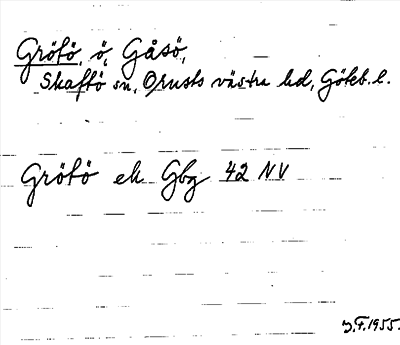 Grötö, ö, Gåsö,
Skaftö sn, Orusts västra hd, Göteb. l.
Grötö ek Gbg 42 NV
J.F. 1955.